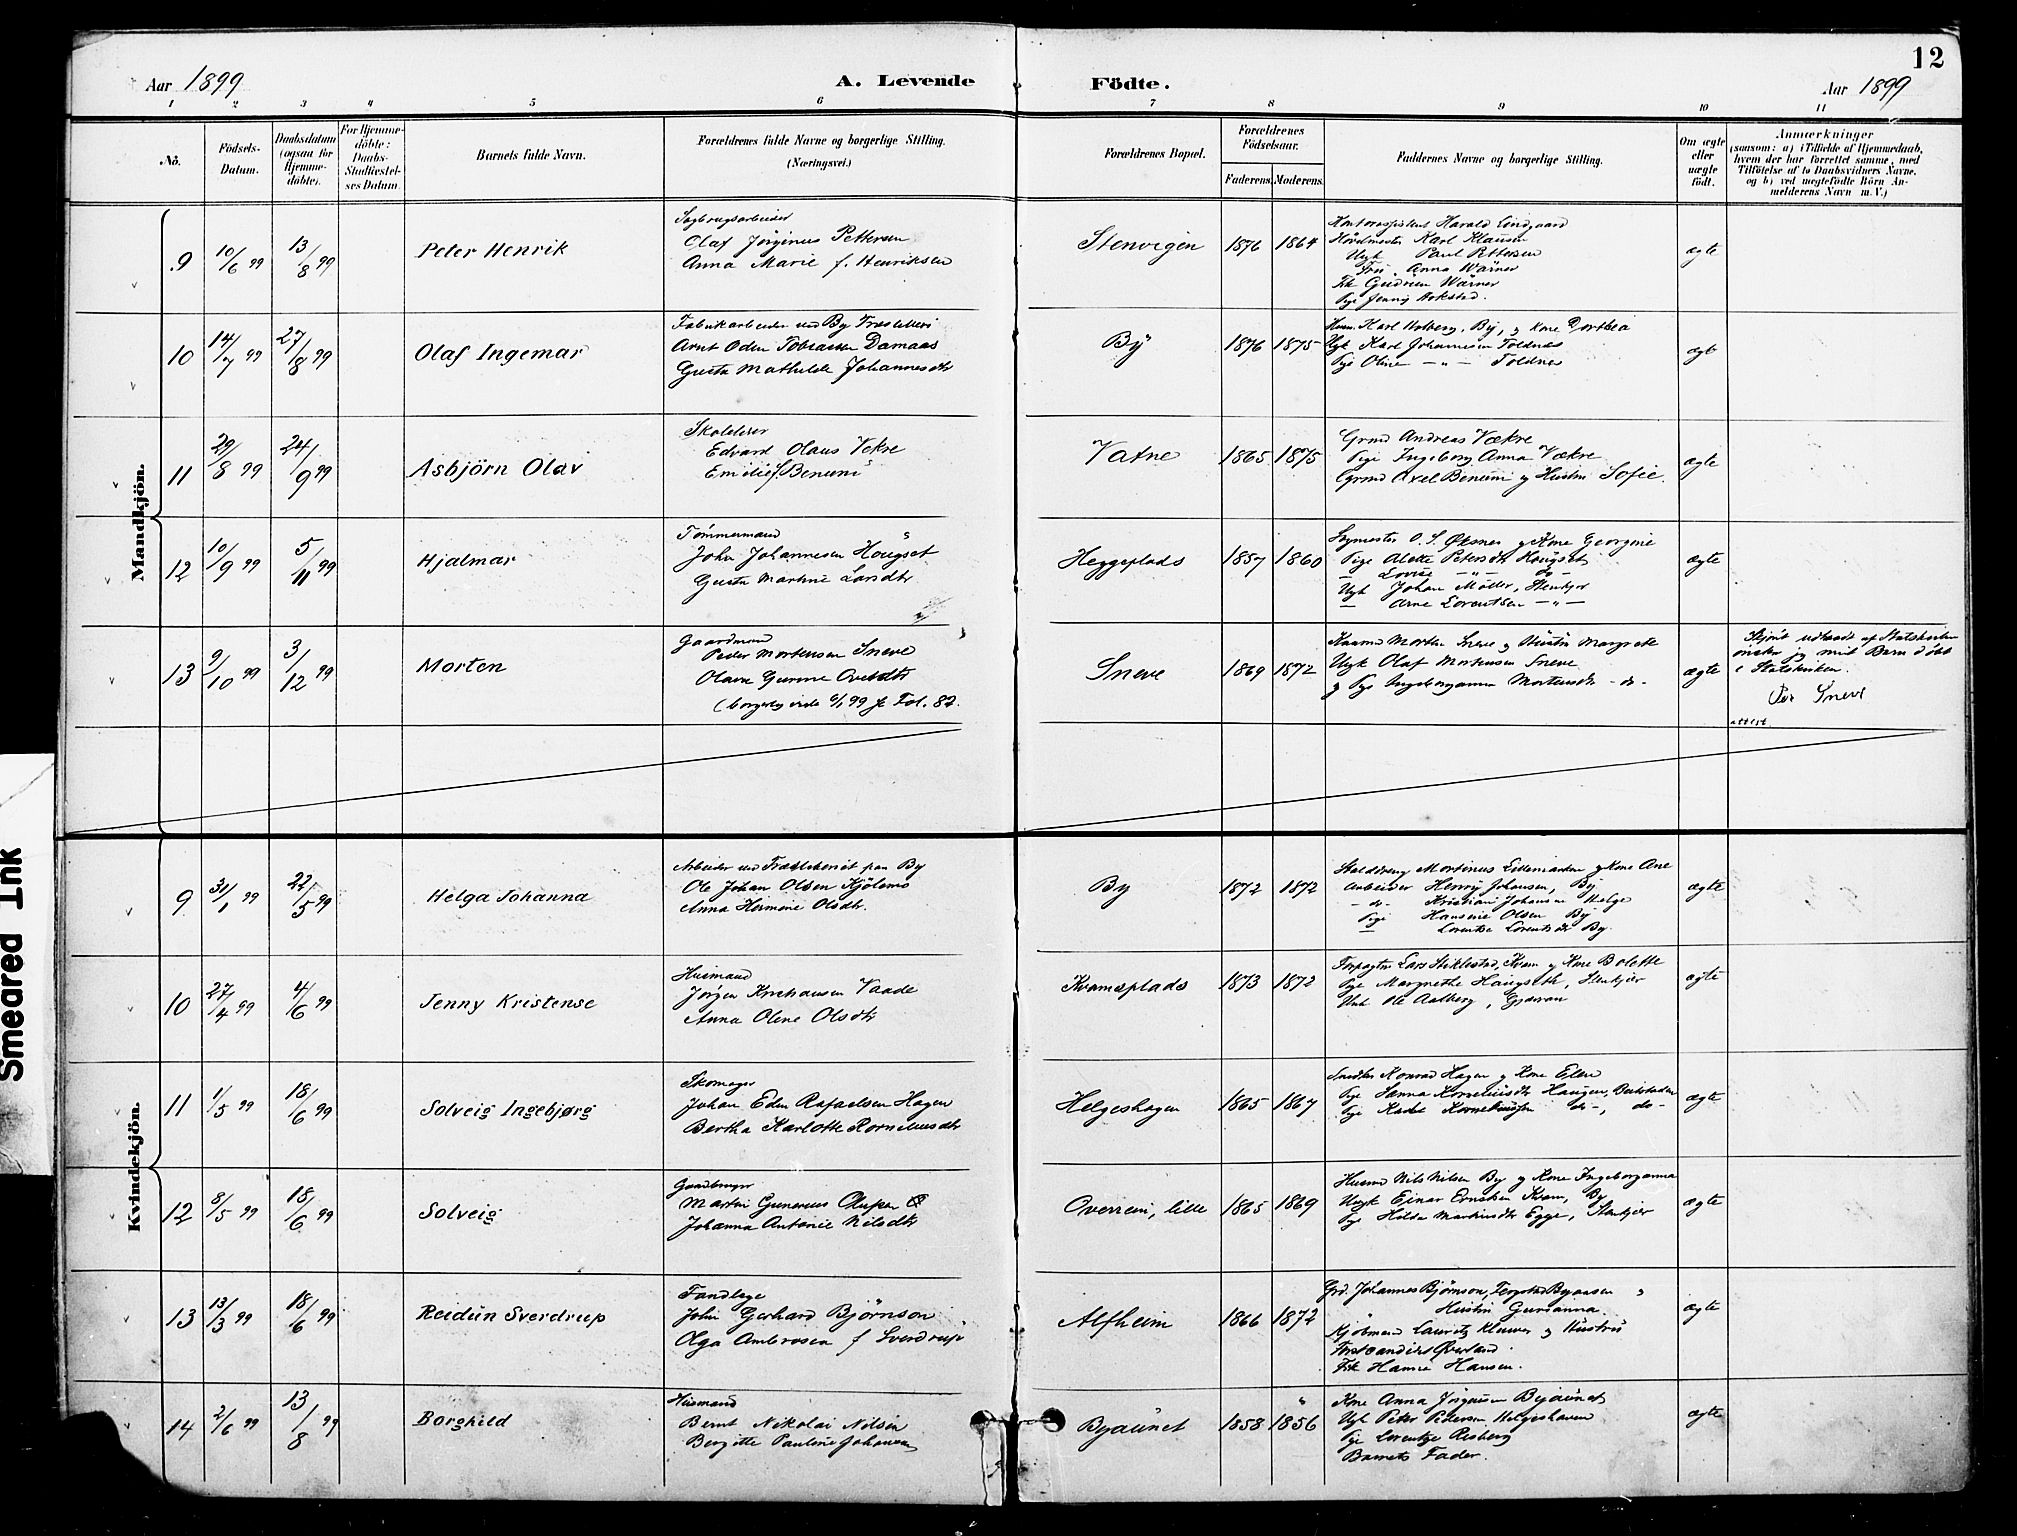 12
Aar 1899
A. Levende
Födte.
Aar 1899
1 2 3 4 5 6 7 8 9 10 11
No.
Födsels-
Datum.
Daabsdatum
(ogsaa for
Hjemme-
döbte).
For Hjemme-
döbte:
Daabs-
Stadfæstel-
ses Datum.
Barnets fulde Navn.
Forældrenes fulde Navne og borgerlige Stilling.
(Næringsvei.)
Forældrenes Bopæl.
Forældrenes
Födselsaar.
Faderens. Moderens.
Faddernes Navne og borgerlige Stilling.
Om ægte
eller
uægte
födt.
Anmærkninger
(saasom: a) i Tilfælde af Hjemmedaab,
hvem der har forrettet samme, med
Tilföielse af to Daabsvidners Navne,
og b) ved uægtefödte Börn An-
melderens Navn m. V.)
Mandkjön.
9 10/6 99 13/8 99 Peter Henrik
Sagbrugsarbeider
Olaf Jørginus Pettersen
Anna Marie f. Henriksen
Stenvigen 1876 1864
Kontorassistent Harald Lindgaard
Høvelmester Karl Klausen
Ungk Paul Pettersen
Fru Anna Wärner
Frk Gudrun Wärner
Pige Jenny
ægte
10 14/7 99 27/8 99 Olaf Ingemar
Fabrikarbeider ved By Træsliberi
Arnt Odin Tobiassen Damaas
Gusta Mathilde Johannesdtr
By 1876 1875
Husm. Karl Holberg, By, og Kone Dorthea
Ungk Karl Johannesen Foldnes
Pige Oline — " — Foldnes
ægte
11 29/8 99 24/9 99 Asbjörn Olav
Skolelærer
Edvard Olaus Vekre
Emilie f. Benum
Vatne 1865 1875
Grmd Andreas Vækre
Pige Ingeborg Anna Vækre
Grmd Axel Benum og Hustru Sofie
ægte
12 10/9 99 5/11 99 Hjalmar
Tømmermand
John Johannesen Hougset
Gusta Martine Larsdtr
Heggeplads 1857 1860
Sagmester O. S. Øksnes og Kone Georgine
Pige Alette Petersdtr Hougset
— Lovise — " — do
Ungk Johan Møller, Stenkjer
— Arne Lorentsen — " —
ægte
13 9/10 99 3/12 99 Morten
Gaardmand
Peder Mortensen Sneve
Olava Gurine
(borgerlig viede 6/1 99 jf Fol. 82.
Sneve 1869 1872
Kaarmd Morten Sneve og Hustru Margrete
Ungk Olaf Mortensen Sneve
og Pige Ingeborganna Mortensdtr - do -
ægte
Skjönt udtraadt af Statskirken
ønsker jeg mit Barn døbt
i Statskirken.
Per Sneve
attest.
Kvindekjön.
9 31/1 99 22/5 99 Helga Johanna
Arbeider ved Træsliberiet paa By
Ole Johan Olsen Kjölnes
Anna Hermine Olsdtr.
By 1872 1872
Stalddreng Mortinus Lillemarken og Kone Ane
Arbeider Henry Johansen, By
— do — Kristian Johansen Helge
Pige Hansine Olsen By
— Lorentse Lorentsdtr By.
ægte
10 27/4 99 4/6 99 Jenny Kristense
Husmand
Jørgen Kristiansen Vaade
Anna Oline Olsdtr
Kvamsplads 1873 1872
Forpagter Lars Stiklestad, Kvam og Kone Bolette
Pige Margrethe Haugseth, Stenkjer
Ungk Ole Aalberg,
ægte
11 1/5 99 18/6 99 Solveig Ingebjørg
Skomager
Johan Edin Rafaelsen Hagen
Bertha Karlotte Korneliusdtr
Helgeshagen 1865 1867
Snedker Konrad Hagen og Kone Elen
Pige Sanna Korneliusdtr Haugen, Beitstaden
Pige Karl Korneliussen do -, do -
ægte
12 8/5 99 18/6 99 Solveig
Gaardbruger
Martin Gunerius
Johanna Antonie Nilsdtr
Overrein, lille 1865 1869
Husmd Nils Nilsen By og Kone Ingeborganna
Ungk Einar Ernstsen Kvam, By
Pige Hilda Martinsdtr Egge, Stenkjer
ægte
13 13/3 99 18/6 99 Reidun Sverdrup
Tandlæge
John Gerhard Bjørnson
Olga Ambrosia f Sverdrup
Alfheim 1866 1872
Grd. Johannes Bjørnson, Fergstad Byaasen
" Hustru Gurianna.
Kjøbmand Lauritz Kluwer og Hustru
Forstcandidat Øverland.
Frk Hanna Hansen.
ægte
14 2/6 99 13/8 99 Borghild
Husmand
Bernt Nikolai Nilsen
Bergitte Pauline Johansen
Byaunet 1858 1856
Kone Anna Jørginsen Byaunet
Ungk Peter Petersen Helgeshaven
Pige Lorentze Risberg
Barnets Fader.
ægte
Smeared Ink